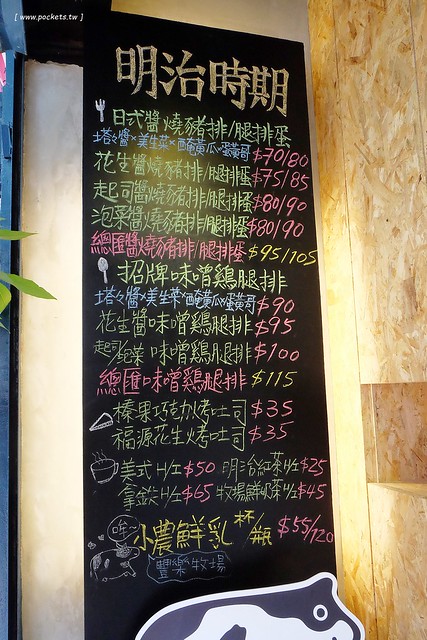 [ www.pockets.tw ]
明治時期
日式醬燒豬排/腿排蛋
塔塔醬×美生菜×酸黃瓜×蛋黃哥 $70/80
花生醬燒豬排/腿排蛋 $75/85
起司醬燒豬排/腿排蛋 $80/90
泡菜醬燒豬排/腿排蛋 $80/90
總匯醬燒豬排/腿排蛋 $95/105
招牌味噌鷄腿排
塔塔醬×美生菜×酸黃瓜×蛋黃哥 $90
花生醬味噌鷄腿排 $95
起司/泡菜 味噌鷄腿排 $100
總匯味噌鷄腿排 $115
榛果巧克力烤吐司 $35
福源花生烤吐司 $35
美式 H/I $50 明治紅茶 H/I $25
拿鉄 H/I $65 牧場鮮奶茶 H/I $45
哞~ 小農鮮乳 杯/瓶 $55/120
豐樂牧場